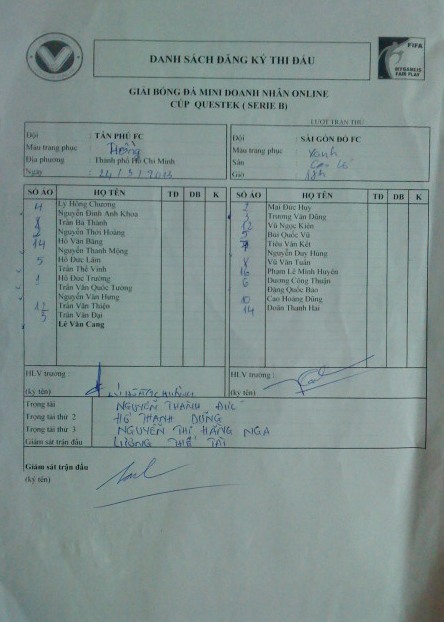 FIFA
MY GAME IS
FAIR PLAY
DANH SÁCH ĐĂNG KÝ THI ĐẤU
GIẢI BÓNG ĐÁ MINI DOANH NHÂN ONLINE
CÚP QUESTEK ( SERIE B)
LƯỢT TRẬN THỨ
Đội : TÂN PHÚ FC
Màu trang phục : Hồng
Địa phương : Thành phố Hồ Chí Minh
Ngày : 24/3/2013
Đội : SÀI GÒN ĐỎ FC
Màu trang phục : Xanh
Sân :
Giờ : 18h
SỐ ÁO HỌ TÊN TĐ DB K
4 Lý Hồng Chương
Nguyễn Đình Anh Khoa
Trần Bá Thành
Nguyễn Thới Hoàng
14 Hồ Văn Băng
Nguyễn Thanh Mộng
5 Hồ Đức Lâm
Trần Thế Vinh
1 Hồ Đức Trường
Trần Văn Quốc Tường
Nguyễn Văn Hưng
12 Trần Văn Thiện
5 Trần Văn Đại
Lê Văn Cang
SỐ ÁO HỌ TÊN TĐ DB K
2 Mai Đức Huy
3 Trương Văn Dũng
12 Vũ Ngọc Kiên
5 Bùi Quốc Vũ
7 Tiêu Văn Kết
Nguyễn Duy Hùng
8 Vũ Văn Tuấn
16 Phạm Lê Minh Huyền
6 Dương Công Thuận
Đặng Quốc Bảo
10 Cao Hoàng Dũng
14 Đoàn Thanh Hải
HLV trưởng :
(ký tên)
HLV trưởng :
(ký tên)
Trọng tài NGUYỄN THÀNH ĐỨC
Trọng tài thứ 2 HỒ THANH DŨNG
Trọng tài thứ 3 NGUYỄN THỊ HẰNG NGA
Giám sát trận đấu LƯƠNG THẾ TÀI
Giám sát trận đấu
(ký tên)